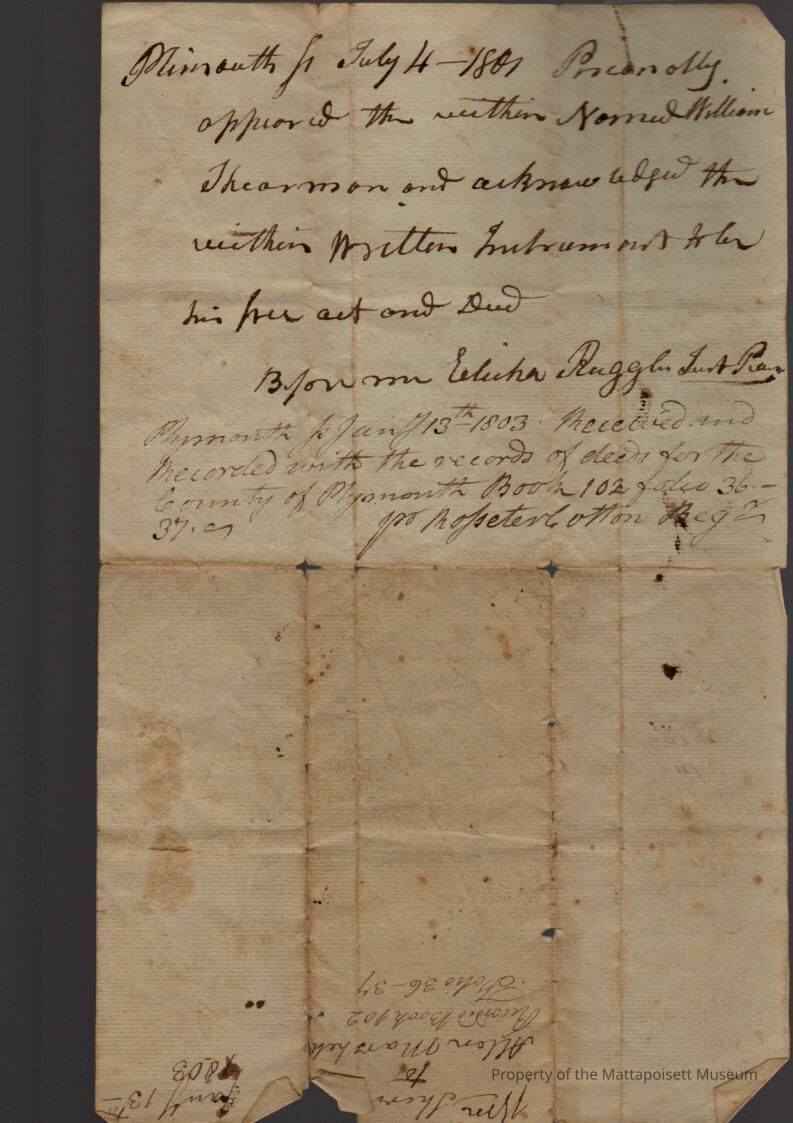 Plimouth ss July 4 - 1801 Personolly
appeored the within Nomed William
Shearman and acknowledged the
within Written Instrument to be
his free act and Deed
Before me Elisha Ruggles Just Peace
Plymouth ss Jany 13th 1803. Received and
Recorded with the records of deeds for the
County of Plymouth Book 102 folio 36.-
37. pr Rosseter Cotton Regr
Wm Sher
to
Allen Marshel
Recorded Book 102
Folio 36-37
Jany 13th
1803
Property of the Mattapoisett Museum